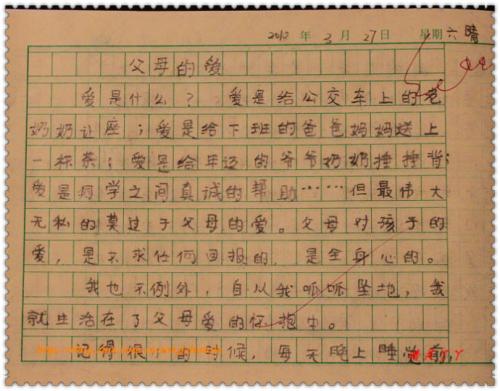 2010年3月27日 星期六 晴
父母的爱
爱是什么?爱是给公交车上的老
奶奶让座;爱是给下班的爸爸妈妈送上
一杯茶;爱是给年迈的爷爷奶奶捶捶背;
爱是同学之间真诚的帮助……但最伟大
无私的莫过于父母的爱。父母对孩子的
爱,是不求任何回报的,是全身心的。
我也不例外,自从我呱呱坠地,我
就生活在了父母爱的怀抱中。
记得很小的时候,每天晚上睡觉前,